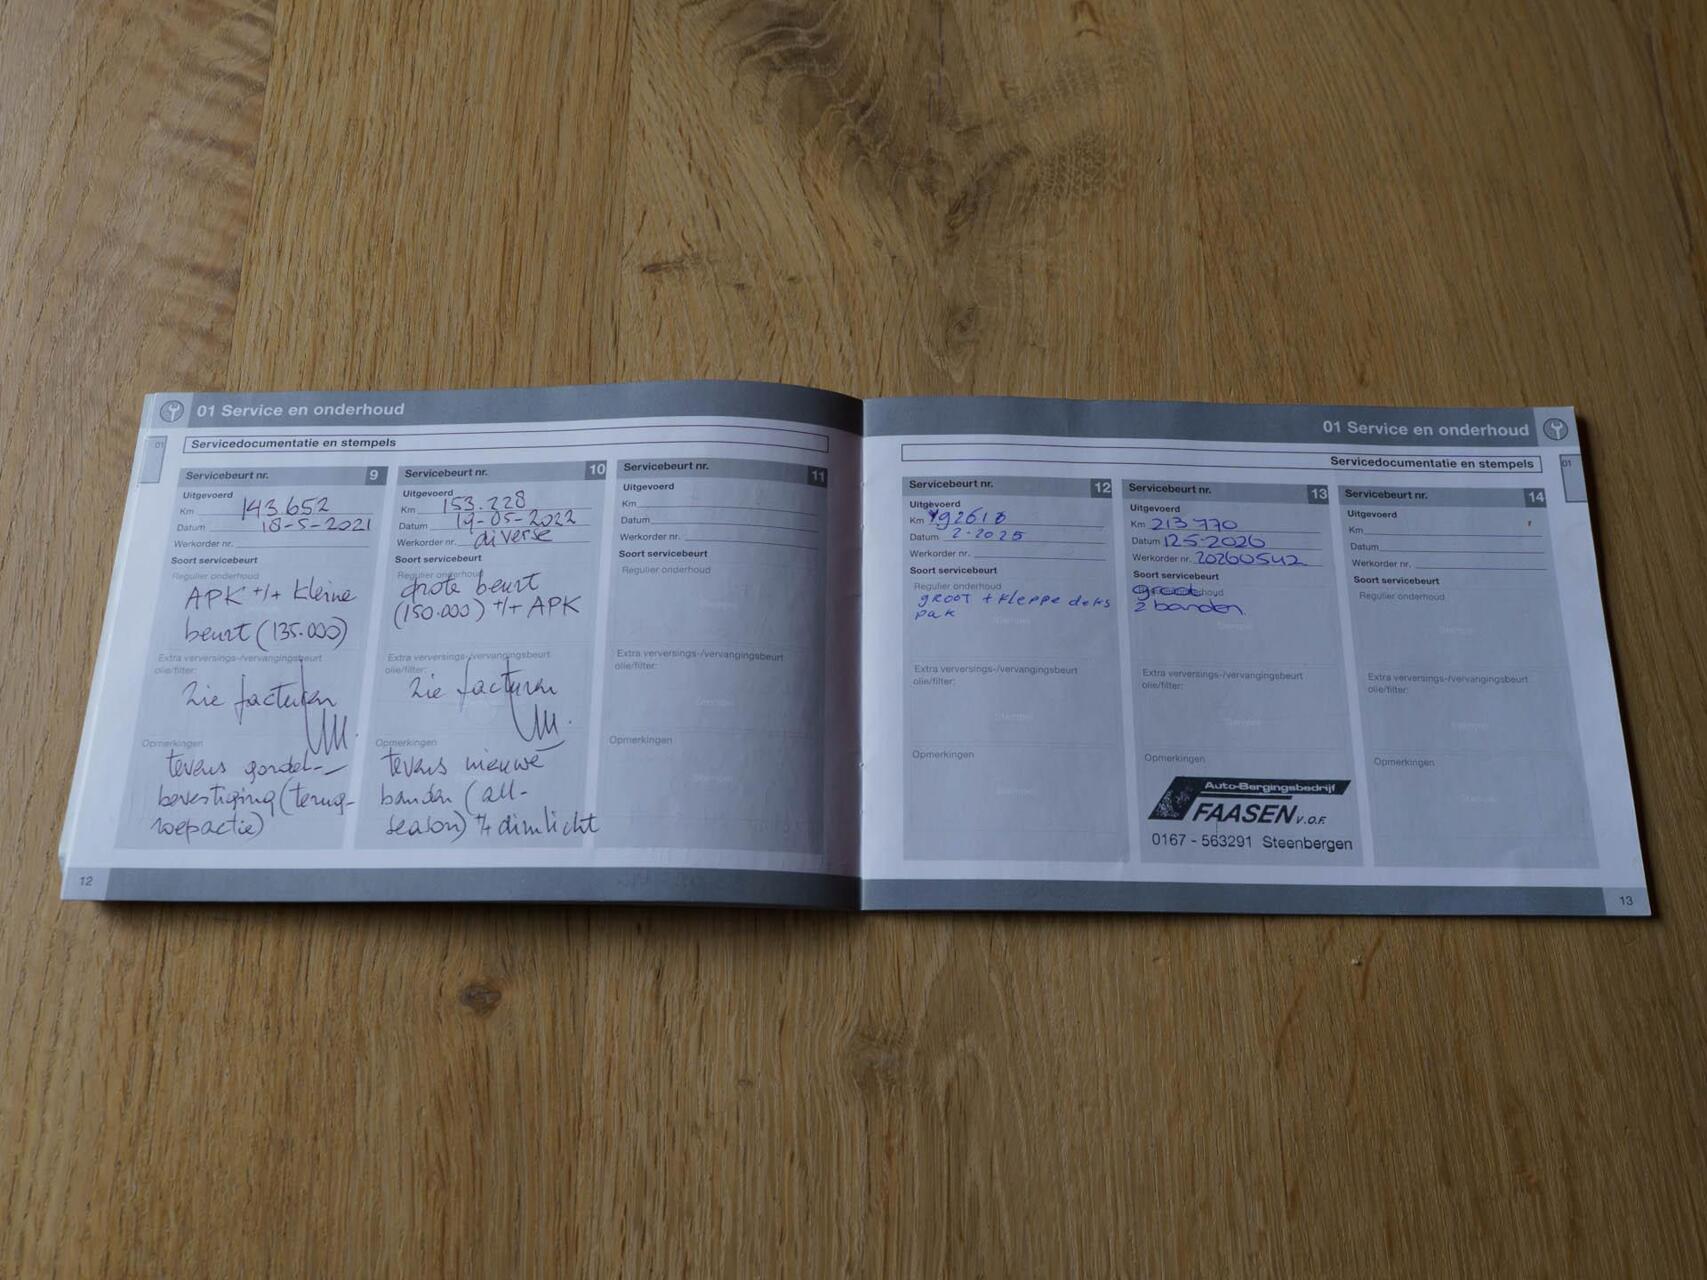 01 Service en onderhoud
01
Servicedocumentatie en stempels
Servicebeurt nr. 9
Uitgevoerd
Km 143.652
Datum 18-5-2021
Werkorder nr.
Soort servicebeurt
Regulier onderhoud
APK +/+ kleine
beurt (135.000)
Extra verversings-/vervangingsbeurt
olie/filter:
Zie facturen
Opmerkingen
tevens gordel-
bevestiging (terug-
roepactie)
Servicebeurt nr. 10
Uitgevoerd
Km 153.228
Datum 19-05-2022
Werkorder nr. diverse
Soort servicebeurt
Regulier onderhoud
grote beurt
(150.000) +/+ APK
Extra verversings-/vervangingsbeurt
olie/filter:
Zie facturen
Opmerkingen
tevens nieuwe
banden (all-
season) +/+ dimlicht
Servicebeurt nr. 11
Uitgevoerd
Km
Datum
Werkorder nr.
Soort servicebeurt
Regulier onderhoud
Stempel
Extra verversings-/vervangingsbeurt
olie/filter:
Stempel
Opmerkingen
Stempel
12
01 Service en onderhoud
01
Servicedocumentatie en stempels
Servicebeurt nr. 12
Uitgevoerd
Km 192618
Datum 2-2025
Werkorder nr.
Soort servicebeurt
Regulier onderhoud
groot + kleppe deks
pak
Stempel
Extra verversings-/vervangingsbeurt
olie/filter:
Stempel
Opmerkingen
Stempel
Servicebeurt nr. 13
Uitgevoerd
Km 213770
Datum 125-2026
Werkorder nr. 20260542
Soort servicebeurt
groot
2 banden.
Stempel
Extra verversings-/vervangingsbeurt
olie/filter:
Stempel
Opmerkingen
Auto-Bergingsbedrijf
FAASEN V.O.F.
0167 - 563291 Steenbergen
Servicebeurt nr. 14
Uitgevoerd
Km
Datum
Werkorder nr.
Soort servicebeurt
Regulier onderhoud
Stempel
Extra verversings-/vervangingsbeurt
olie/filter:
Stempel
Opmerkingen
Stempel
13